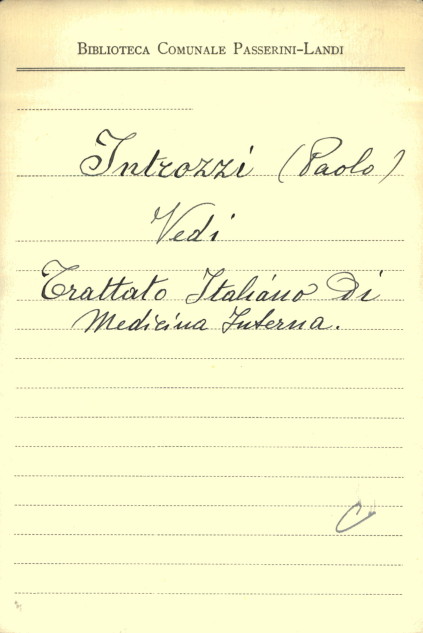 BIBLIOTECA COMUNALE PASSERINI-LANDI
Introzzi (Paolo)
Vedi
Trattato Italiano Di
Medicina Interna.
C